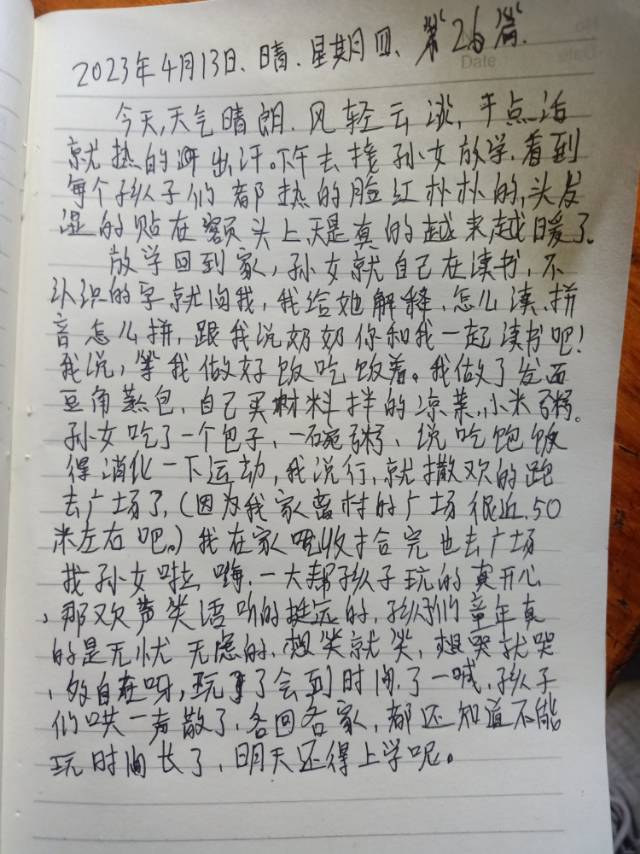 2023年4月13日、晴.星期四、第26篇.
Date
今天,天气晴朗.风轻云淡,干点活
就热的浑出汗。下午去接孙女放学.看到
每个孩子们都热的脸红朴朴的,头发
湿的贴在额头上,天是真的越来越暖了.
放学回到家,孙女就自己在读书,不
认识的字就问我,我给她解释,怎么读、拼
音怎么拼,跟我说奶奶你和我一起读书吧!
我说,等我做好饭吃饭着。我做了发面
豆角蒸包,自己买材料拌的凉菜.小米粥.
孙女吃了一个包子,一碗粥、说吃饱饭
得消化一下运动,我说行,就撒欢的跑
去广场了,(因为我家离村的广场很近.50
米左右吧。)我在家呢收拾完也去广场
找孙女啦嗨,一大帮孩子玩的真开心
,那欢声笑语听的挺远的,孩子们童年真
的是无忧无虑的,想笑就笑,想哭就哭
,多自在呀,玩了会到时间了一喊,孩子
们哄一声散了,各回各家,都还知道不能
玩时间长了,明天还得上学呢。